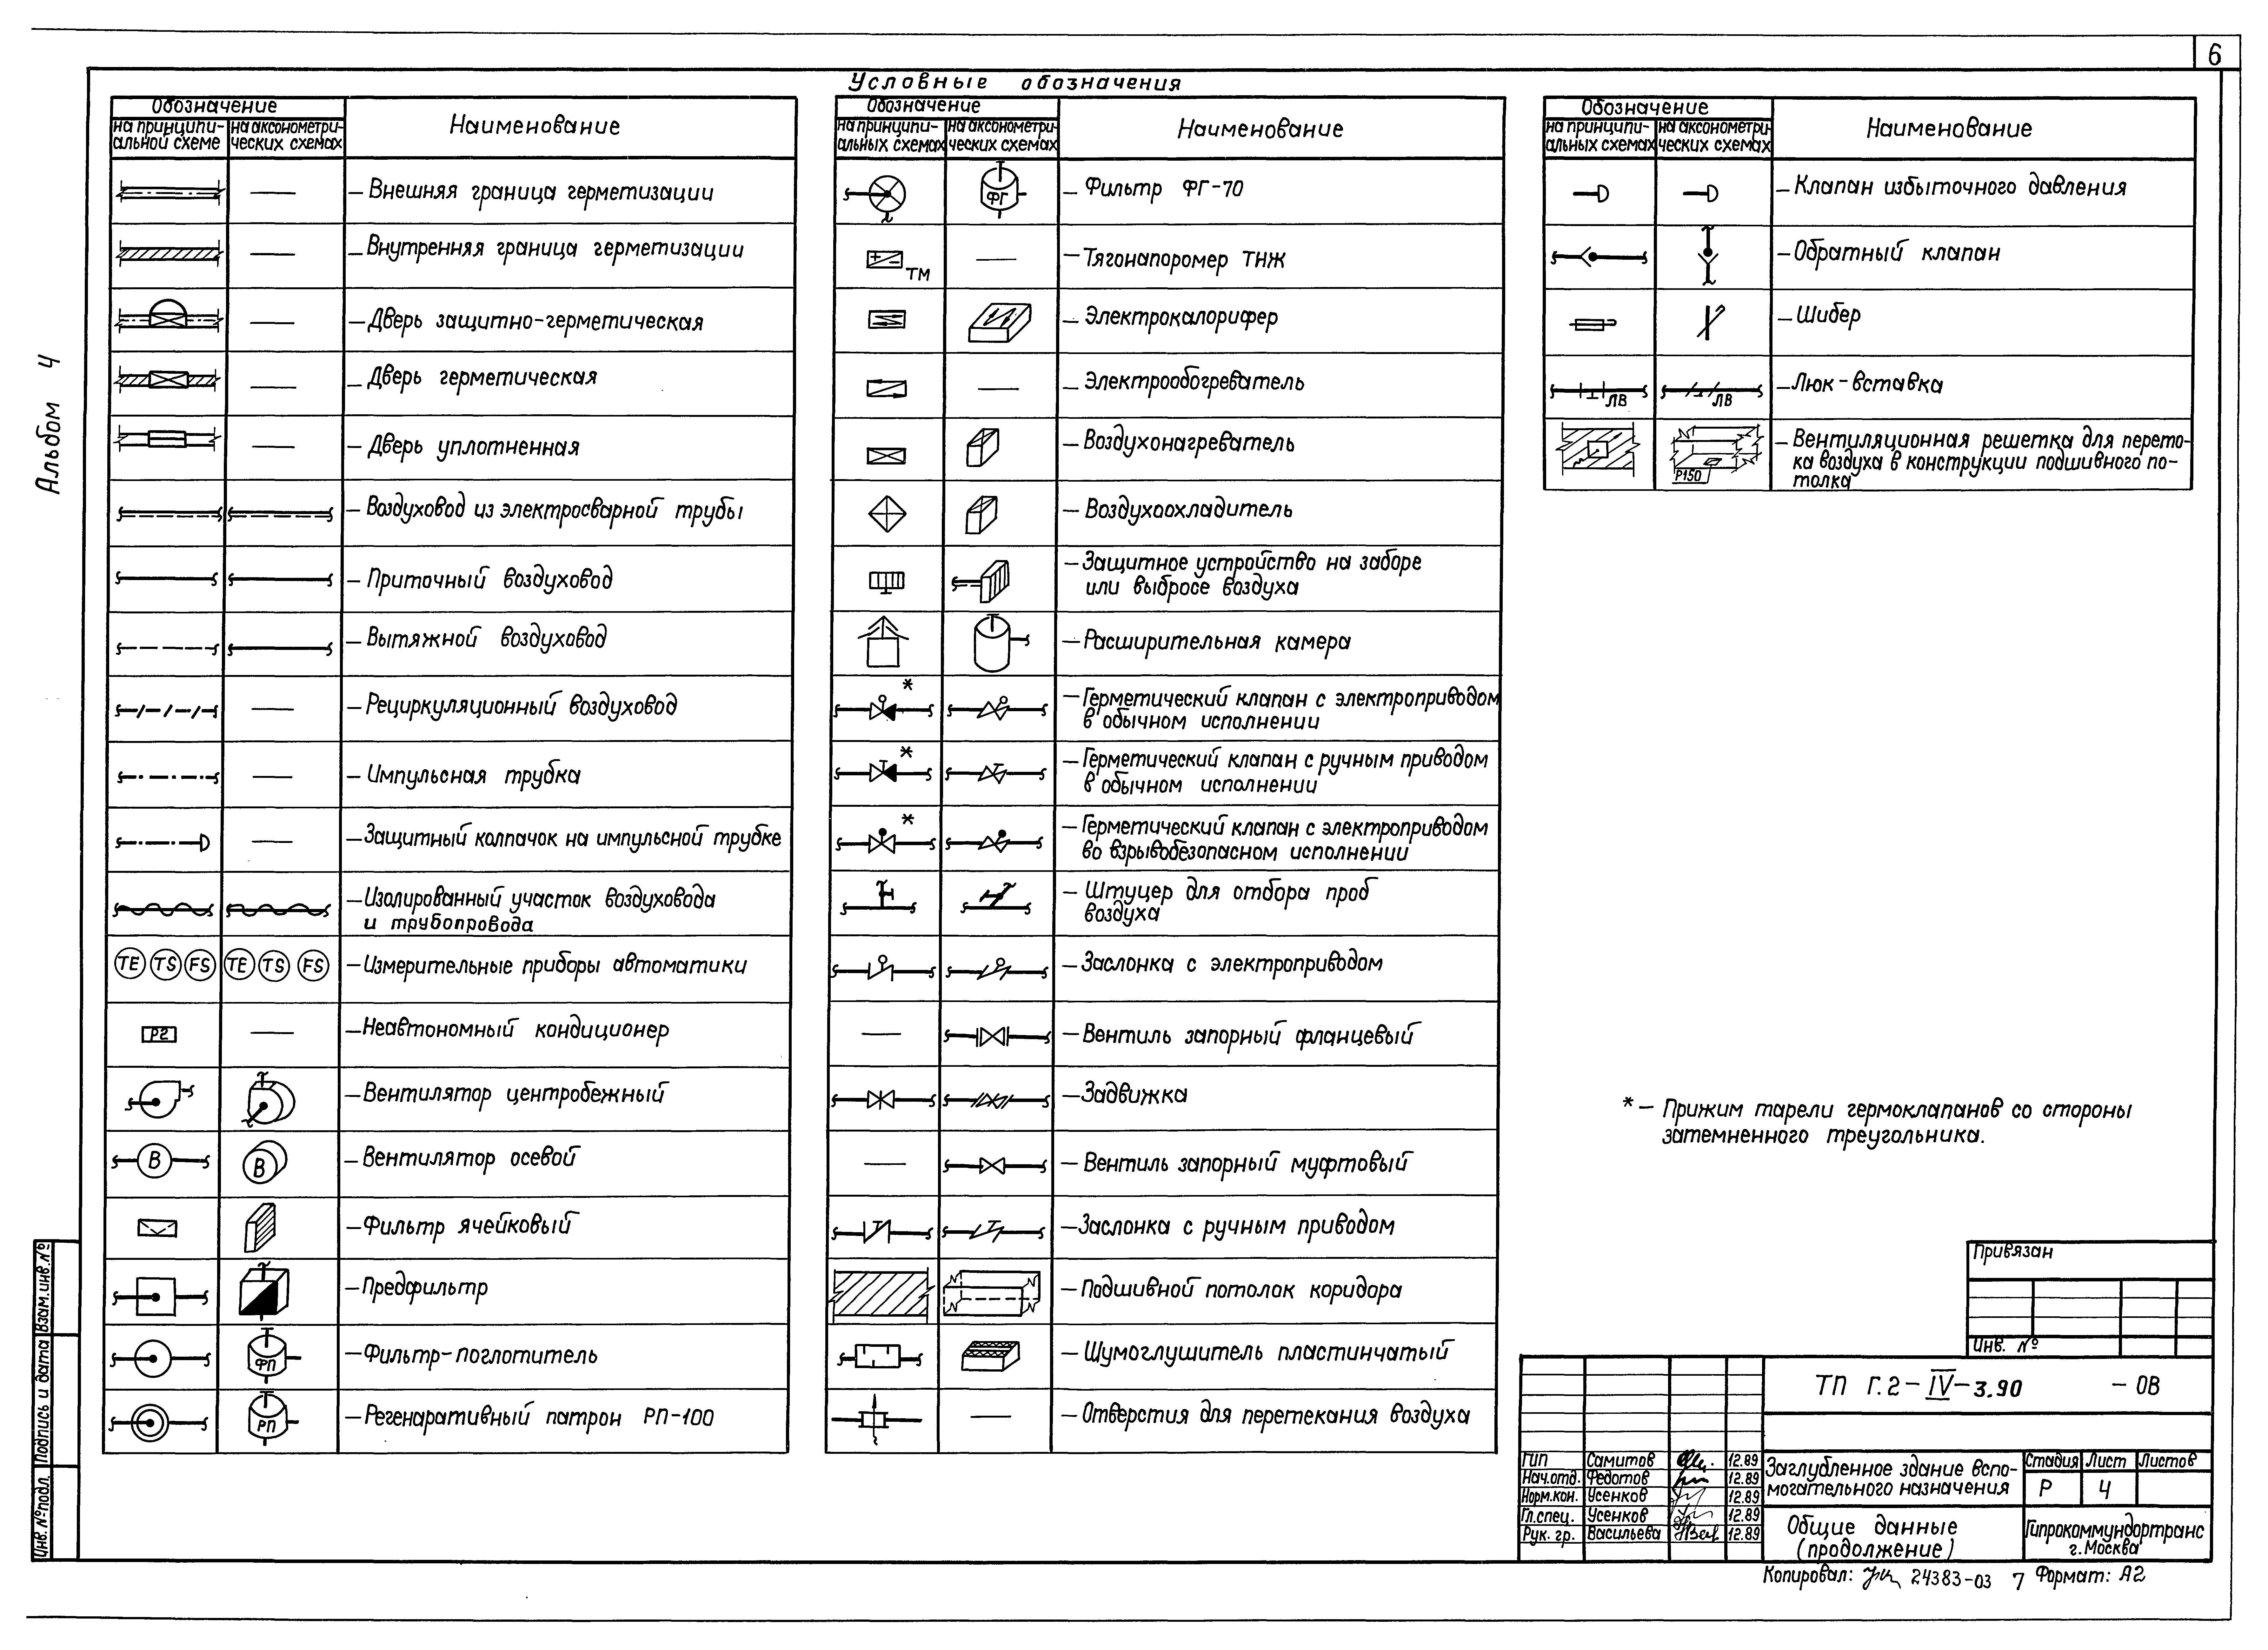 6
Условные обозначения
Альбом 4
Обозначение
Наименование
на принципи-
альной схеме
на аксонометри-
ческих схемах
— Внешняя граница герметизации
— Внутренняя граница герметизации
— Дверь защитно-герметическая
— Дверь герметическая
— Дверь уплотненная
— Воздуховод из электросварной трубы
— Приточный воздуховод
— Вытяжной воздуховод
— Рециркуляционный воздуховод
— Импульсная трубка
— Защитный колпачок на импульсной трубке
— Изолированный участок воздуховода
и трубопровода
TE TS FS TE TS FS — Измерительные приборы автоматики
— Неавтономный кондиционер
— Вентилятор центробежный
В В — Вентилятор осевой
— Фильтр ячейковый
— Предфильтр
ФП — Фильтр-поглотитель
РП — Регенаративный патрон РП-100
Обозначение
Наименование
на принципи-
альных схемах
на аксонометри-
ческих схемах
ФГ — Фильтр ФГ-70
+ - ТМ — Тягонапоромер ТНЖ
— Электрокалорифер
— Электрообогреватель
— Воздухонагреватель
— Воздухоохладитель
— Защитное устройство на заборе
или выбросе воздуха
— Расширительная камера
* — Герметический клапан с электроприводом
в обычном исполнении
* — Герметический клапан с ручным приводом
в обычном исполнении
* — Герметический клапан с электроприводом
во взрывобезопасном исполнении
— Штуцер для отбора проб
воздуха
— Заслонка с электроприводом
— Вентиль запорный фланцевый
— Задвижка
— Вентиль запорный муфтовый
— Заслонка с ручным приводом
— Подшивной потолок коридора
— Шумоглушитель пластинчатый
— Отверстия для перетекания воздуха
Обозначение
Наименование
на принципи-
альных схемах
на аксонометри-
ческих схемах
— Клапан избыточного давления
— Обратный клапан
— Шибер
ЛВ ЛВ — Люк-вставка
Р150 — Вентиляционная решетка для перето-
ка воздуха в конструкции подшивного по-
толка
* — Прижим тарели гермоклапанов со стороны
затемненного треугольника.
Привязан
Инв. №
ТП Г.2-IV-3.90 -ОВ
ГИП Самитов 12.89
Нач.отд. Федотов 12.89
Норм.кон. Усенков 12.89
Гл.спец. Усенков 12.89
Рук. гр. Васильева 12.89
Заглубленное здание вспо-
могательного назначения
Стадия Лист Листов
Р 4
Общие данные
(продолжение)
Гипрокоммундортранс
г. Москва
Копировал: 24383-03 7 Формат: А2
Взам.инв.№
Подпись и дата
Инв.№подл.